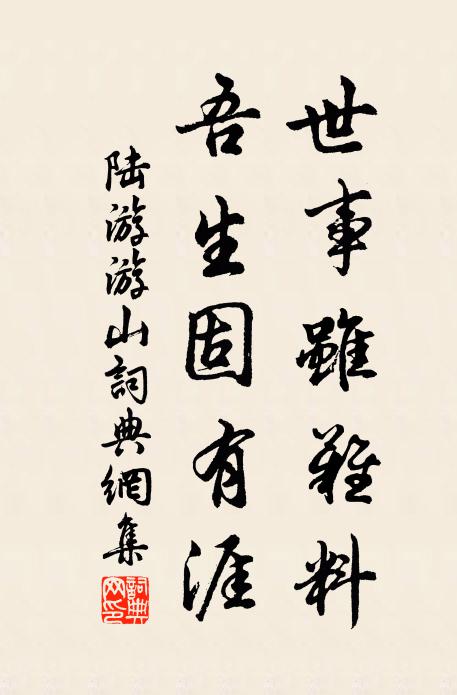 世事雖難料
吾生固有涯
陸游游山詞典網集
詞典
網印